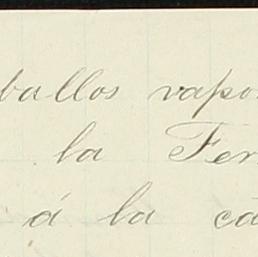 ballos vapo
la Fer
á la ca